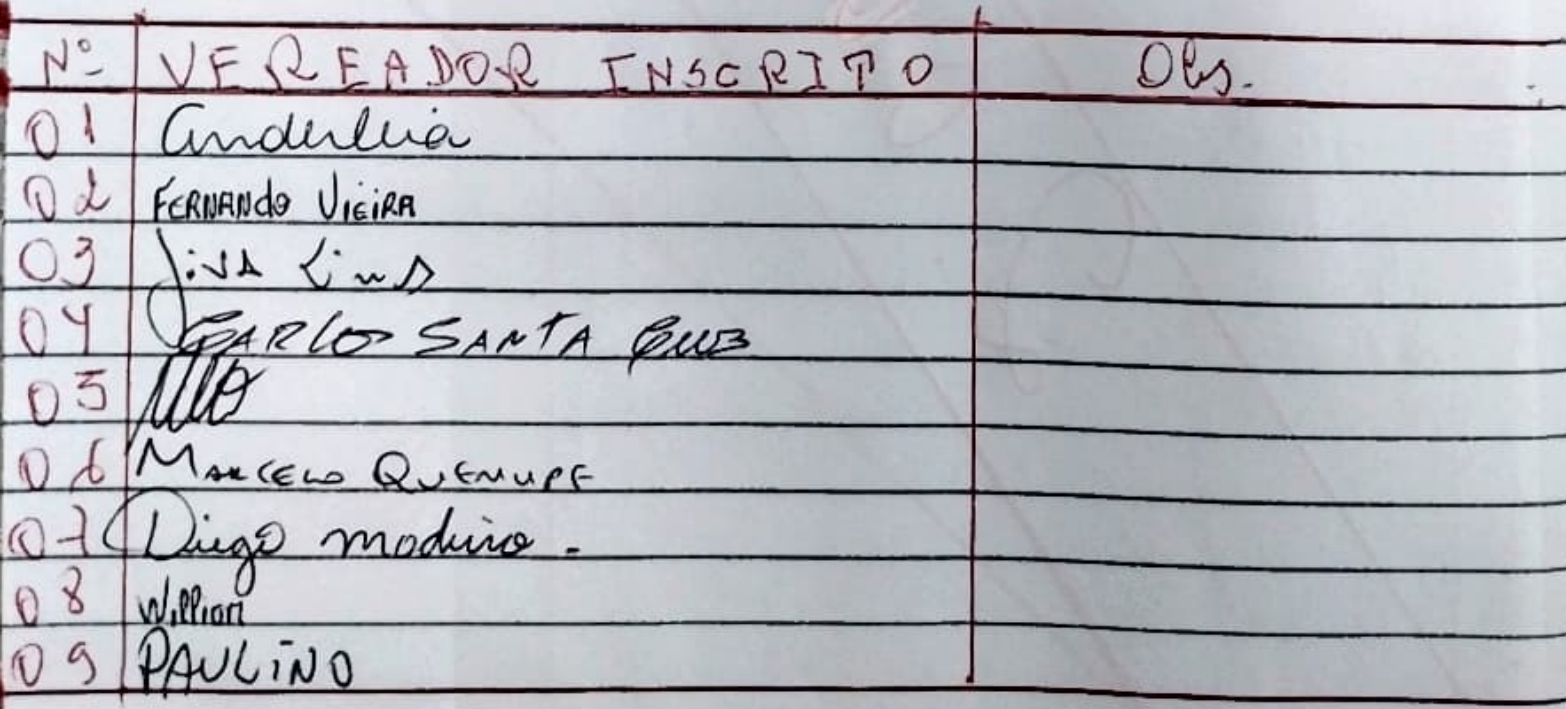 Nº VEREADOR INSCRITO Obs.
01 Anderleia
02 FERNANDO VIEIRA
03 Jiva Lima
04 CARLOS SANTA CRUZ
05
06 MARCELO
07 Diego
08 Willian
09 PAULINO